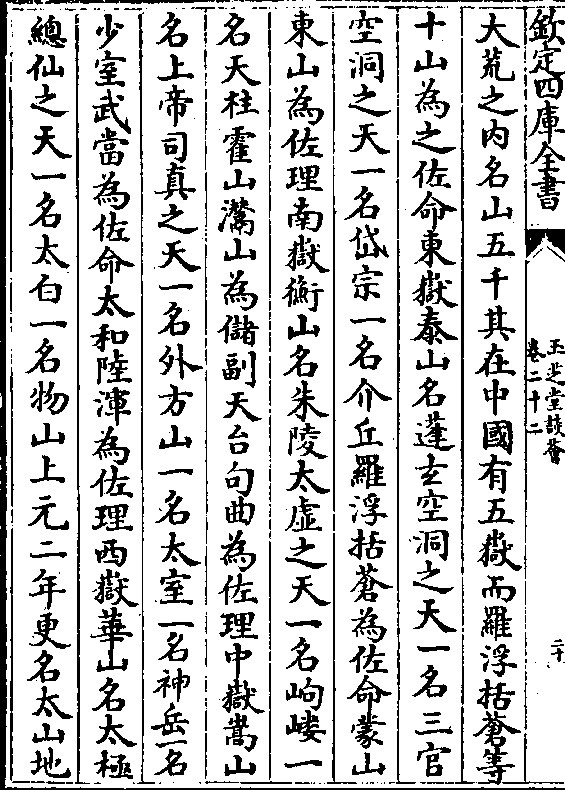 欽定四庫全書
玉芝堂談薈
卷二十二
二十
大荒之内名山五千其在中國有五嶽而羅浮括蒼等
十山為之佐命東嶽泰山名蓬玄空洞之天一名三官
空洞之天一名岱宗一名介丘羅浮括蒼為佐命蒙山
東山為佐理南嶽衡山名朱陵太虛之天一名岣嶁一
名天柱霍山灊山為儲副天台句曲為佐理中嶽嵩山
名上帝司真之天一名外方山一名太室一名神岳一名
少室武當為佐命太和陸渾為佐理西嶽華山名太極
總仙之天一名太白一名物山上元二年更名太山地